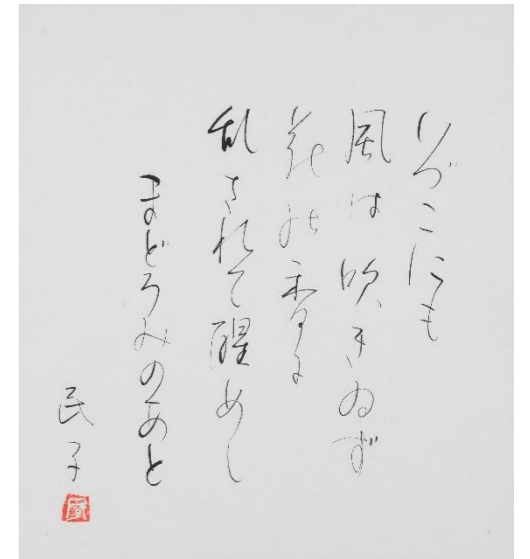 いづこにも
風は吹きゐず
花の香に
乱されて醒めし
まどろみのあと
民子